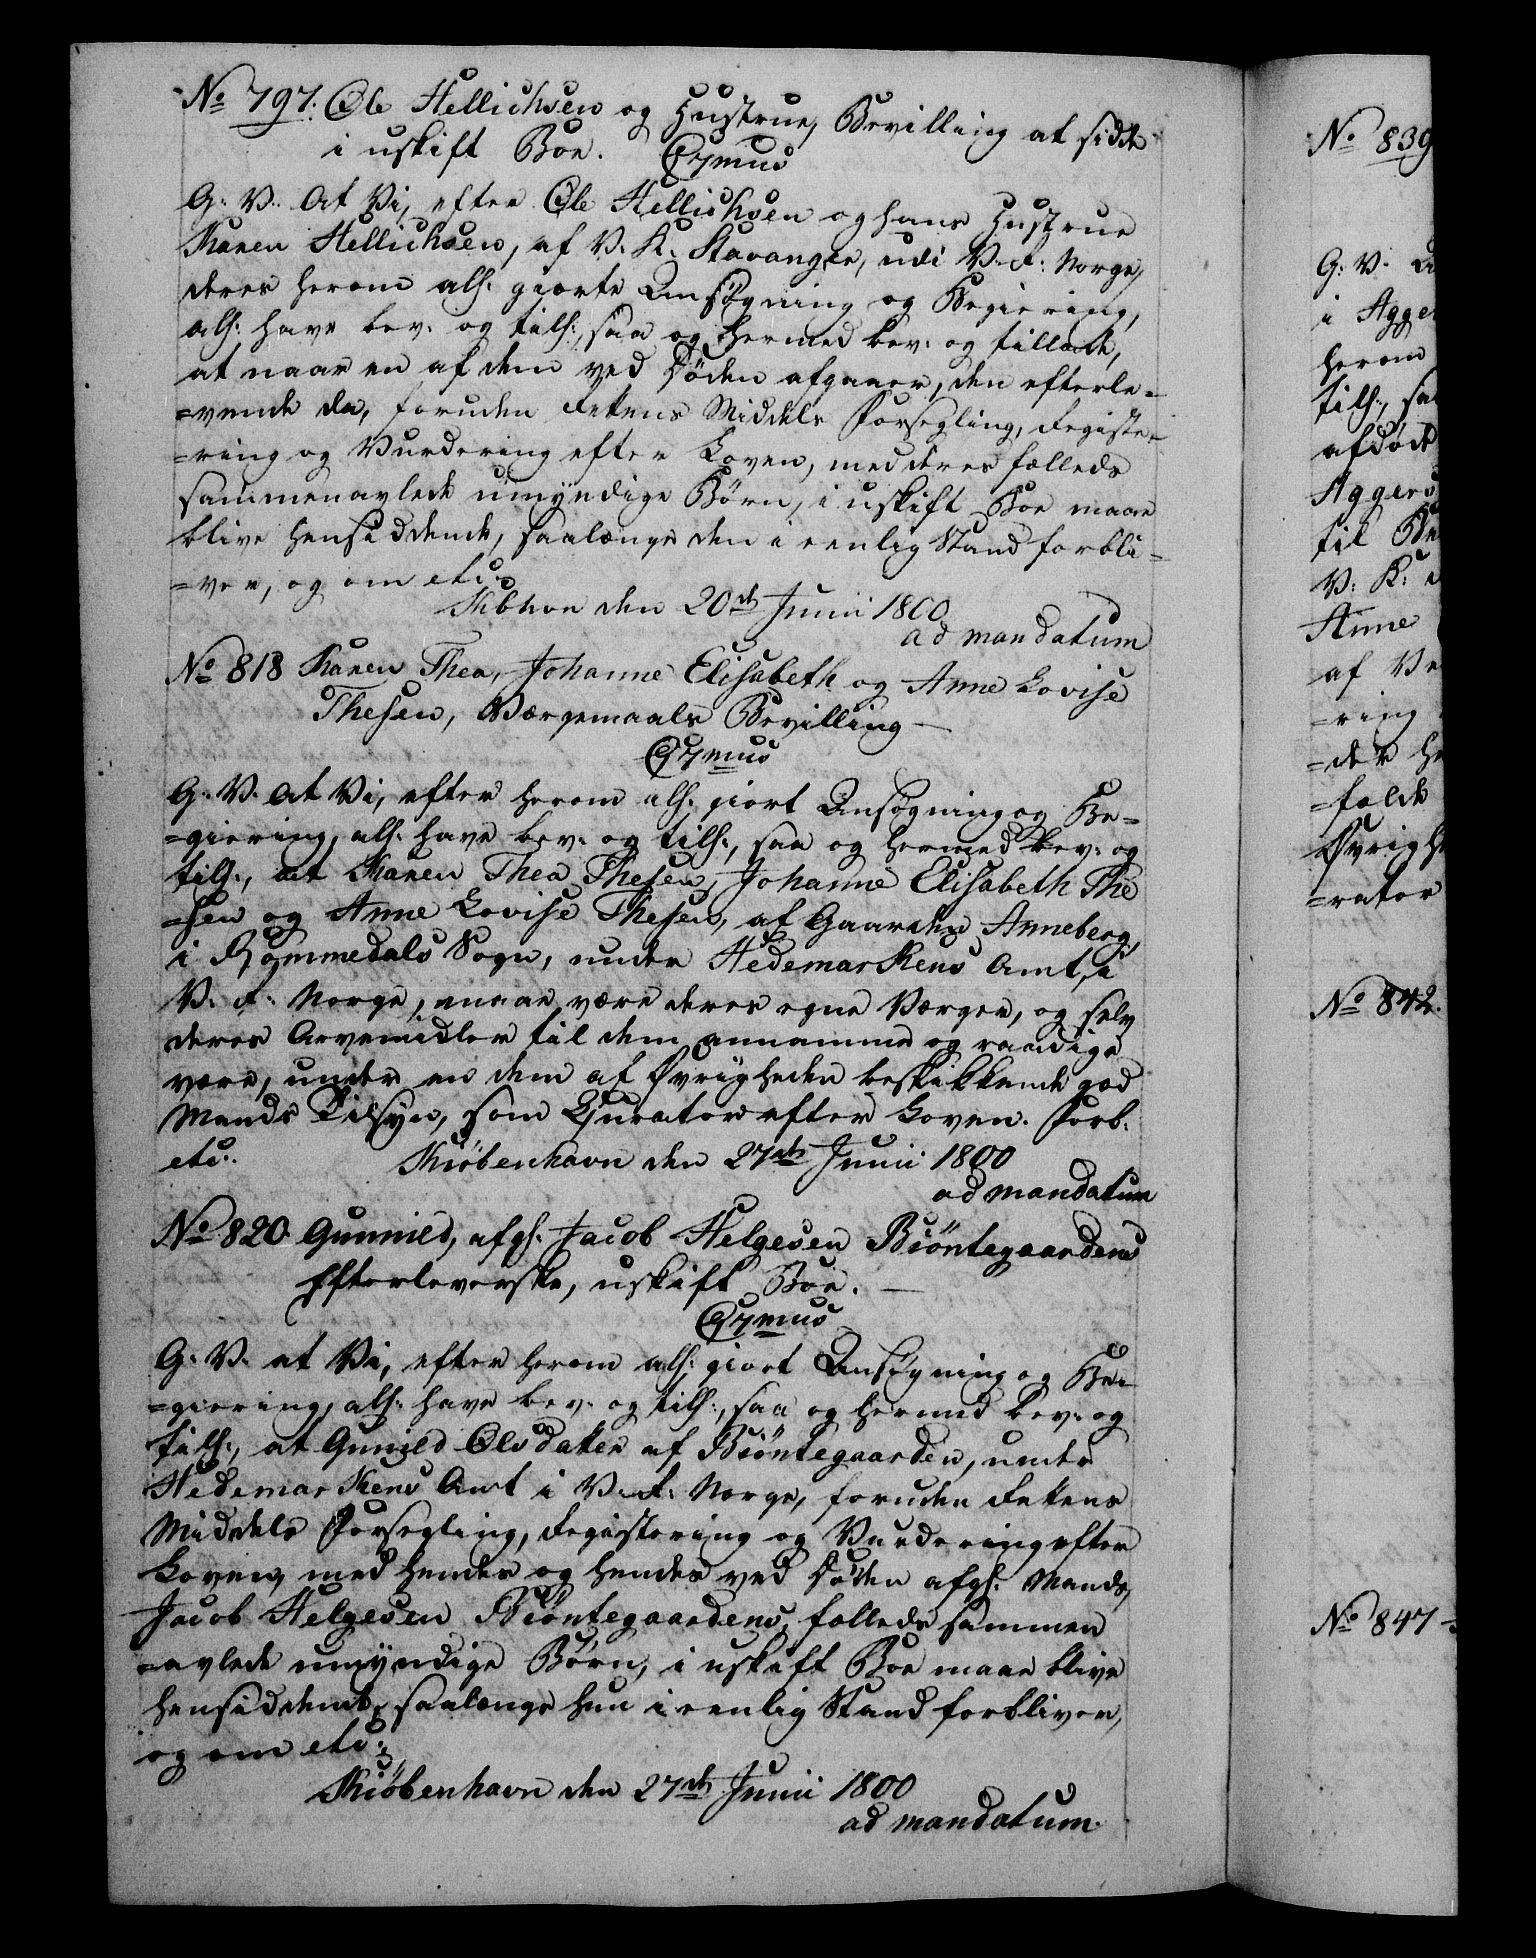 No 797. Ole Hellichsen og Hustrue, Bevilling at sidde
i uskift Boe. C7mus
G: V: At Vi, efter Ole Hellichsen og hans Hustrue
Karen Hellichsen, af V. K. Stavanger, udi V. R: Norge,
deres herom all: giorte Ansøgning og Begiering,
all: have bev: og till:, saa og hermed bev: og tillade,
at naar en af dem ved Døden afgaaer, den efterle-
=vende da, foruden Rettens Middels Forsegling, Registe-
=ring og Vurdering efter Loven, med deres fælleds
sammenavlede umyndige Børn, i uskift Boe maae
blive hensiddende, saalænge den i eenlig Stand forbli-
=ver, og om etc:
Kbhvn den 20de Junii 1800
ad mandatum
No 818 Karen Thea, Johanne Elisabeth og Anne Lovise
Thesen, Værgemaals Bevilling —
C7mus
G: V. At Vi, efter herom all: giort Ansøgning og Be=
=giering, all: have bev: og till:, saa og hermed bev: og
till:, at Karen Thea Thesen, Johanne Elisabeth The
=sen og Anne Lovise Thesen, af Gaarden Anneberg,
i Rommedals Sogn, under Hedemarkens Amt, i
V. R: Norge, maae være deres egne Værger, og selv
deres Arvemidler til dem annamme og raadige
være, under en dem af Øvrigheden beskikkende god
Mands Tilsyn, som Curator efter Loven. Forb.
etc:. Kiöbenhavn den 27de Junii 1800
ad mandatum
No 820. Gunnild, afg: Jacob Helgesen Biöntegaardens
Efterleverske, uskift Boe. —
C7mus
G: V. at Vi, efter herom all: giort Ansøgning og Be-
=giering, all: have bev: og till:, saa og hermed bev: og
till:, at Gunild Olsdatter af Biöntegaarden, under
Hedemarkens Amt i V. R: Norge, foruden Rettens
Middels Forsegling, Registering og Vurdering efter
Loven, med hendes og hendes ved Døden afg: Mands,
Jacob Helgesen Biöntegaardens, fælleds sammen
=avlede umyndige Børn, i uskift Boe maae blive
hensiddende, saalænge hun i eenlig Stand forbliver,
og om etc:
Kiöbenhavn den 27de Junii 1800
ad mandatum.
No 839
G: V.
i Agge
herom
till:, saa
afdøde
Aggers
til
V: K:
Anne
af
=ring
=der
=fælde
Øvrigh
=rator
No 842.
No 847